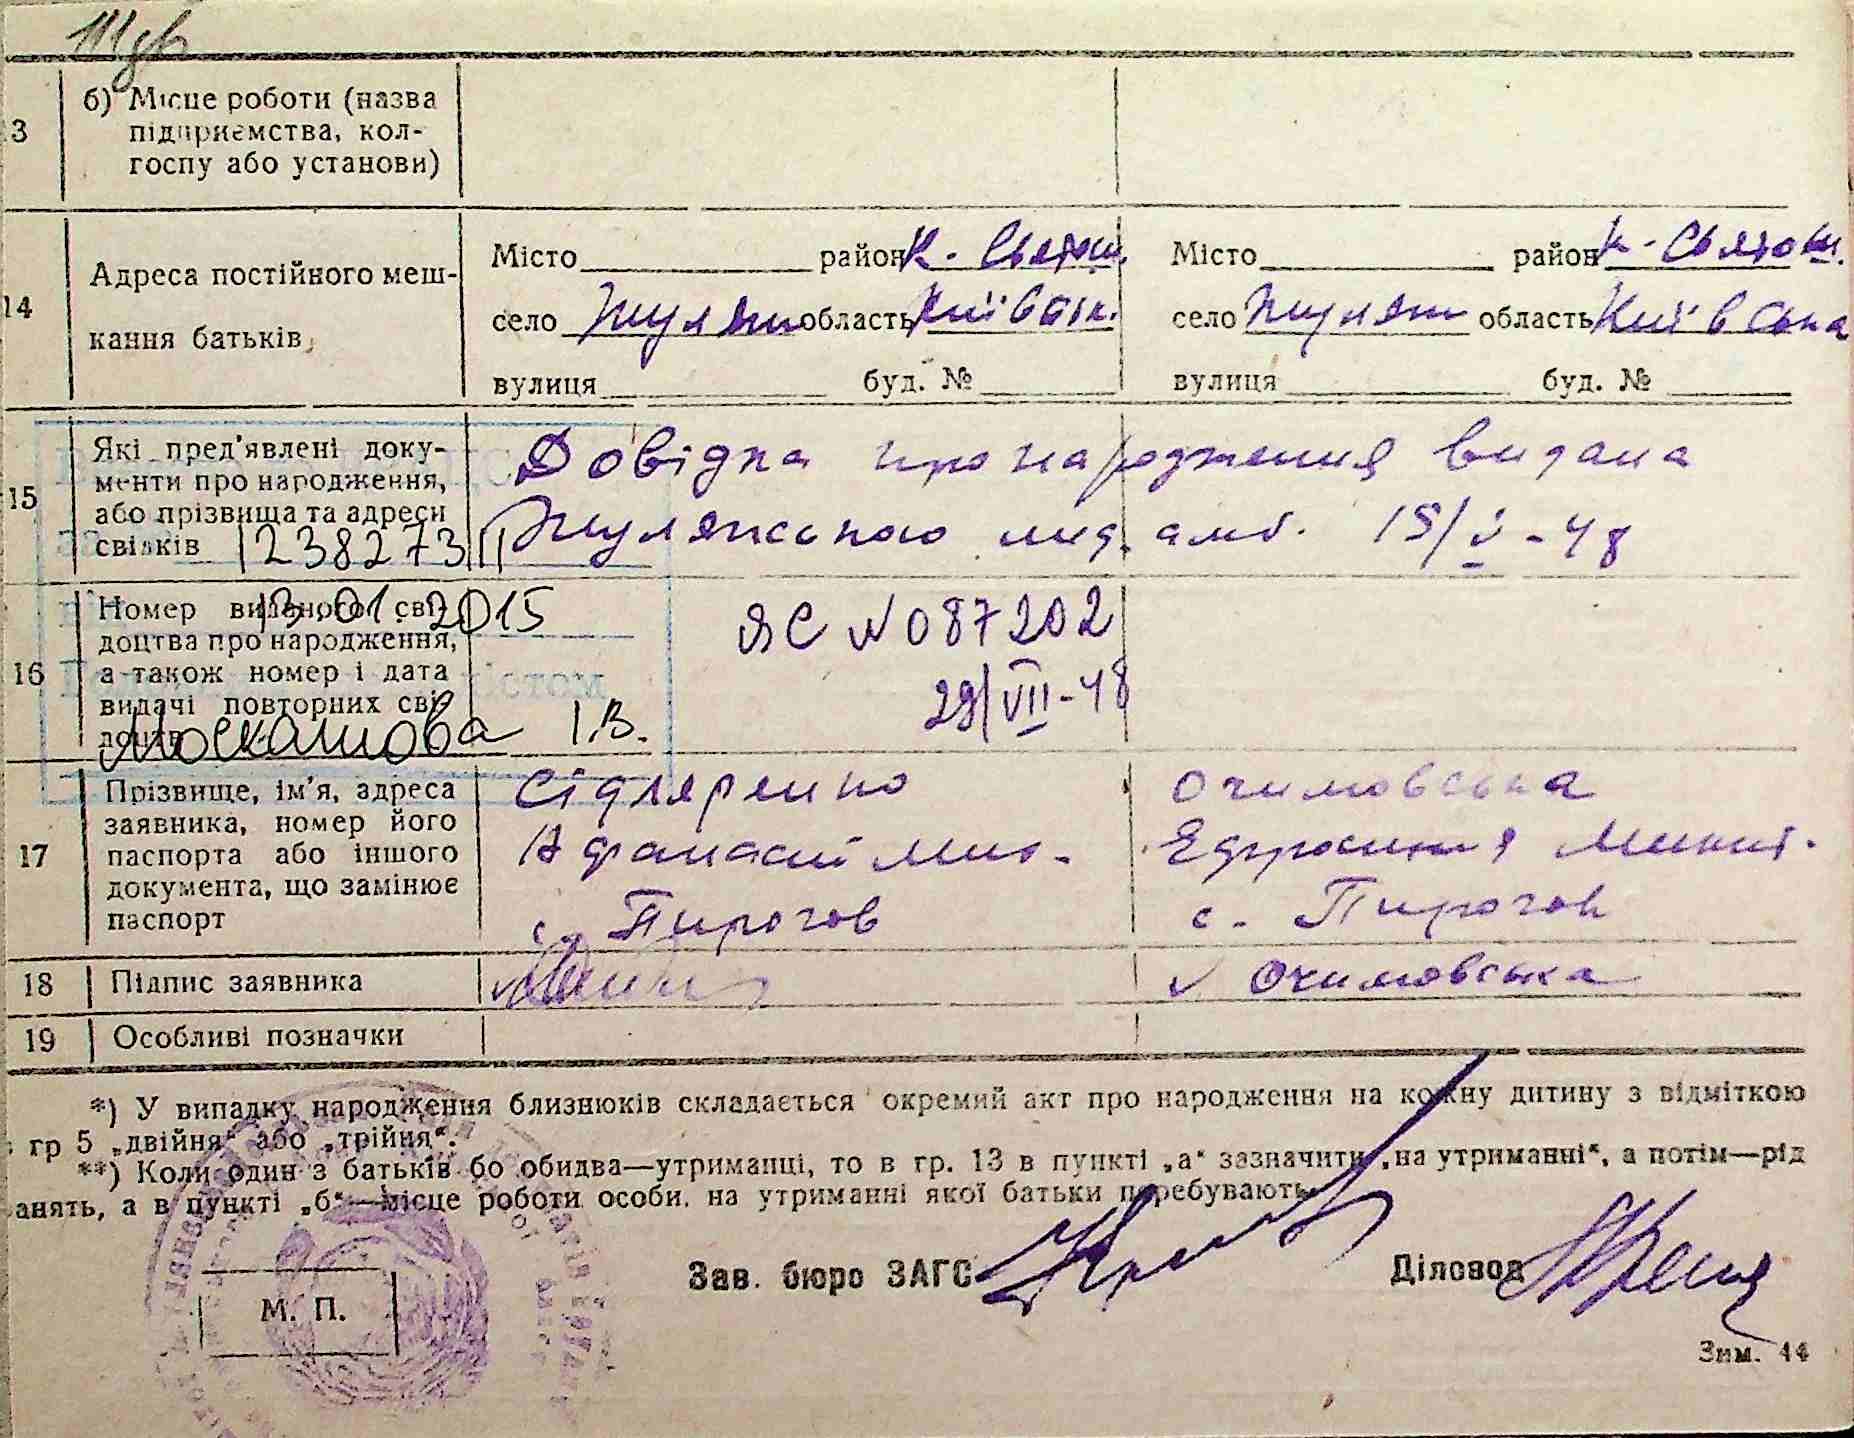 13 б) Місце роботи (назва
підприємства, кол-
госпу або установи)
14 Адреса постійного меш-
кання батьків
Місто район К. Святош. Місто район К-Святош.
село Жуляни область Київськ. село Жуляни область Київська
вулиця буд. № вулиця буд. №
15 Які пред'явлені доку-
менти про народження,
або прізвища та адреси
свідків
Довідка про народження видана
Жулянською мед. амб. 15/V-48
238273
16 Номер виданого сві-
доцтва про народження,
а також номер і дата
видачі повторних сві-
доцтв
13.01.2015
Москашова І.В.
ЯС № 087202
29/VII-48
17 Прізвище, ім'я, адреса
заявника, номер його
паспорта або іншого
документа, що замінює
паспорт
Сідляренко
Афанасій Мих.
с. Пирогов
Очимовська
Ефросиния Микит.
с. Пирогов
18 Підпис заявника Очимовська
19 Особливі позначки
*) У випадку народження близнюків складається окремий акт про народження на кожну дитину з відміткою
гр 5 „двійня“ або „трійня“.
**) Коли один з батьків бо обидва—утриманці, то в гр. 13 в пункті „а“ зазначити „на утриманні“, а потім—рід
анять, а в пункті „б“—місце роботи особи. на утриманні якої батьки перебувають.
Зав. бюро ЗАГС Діловод
М. П.
Зим. 44